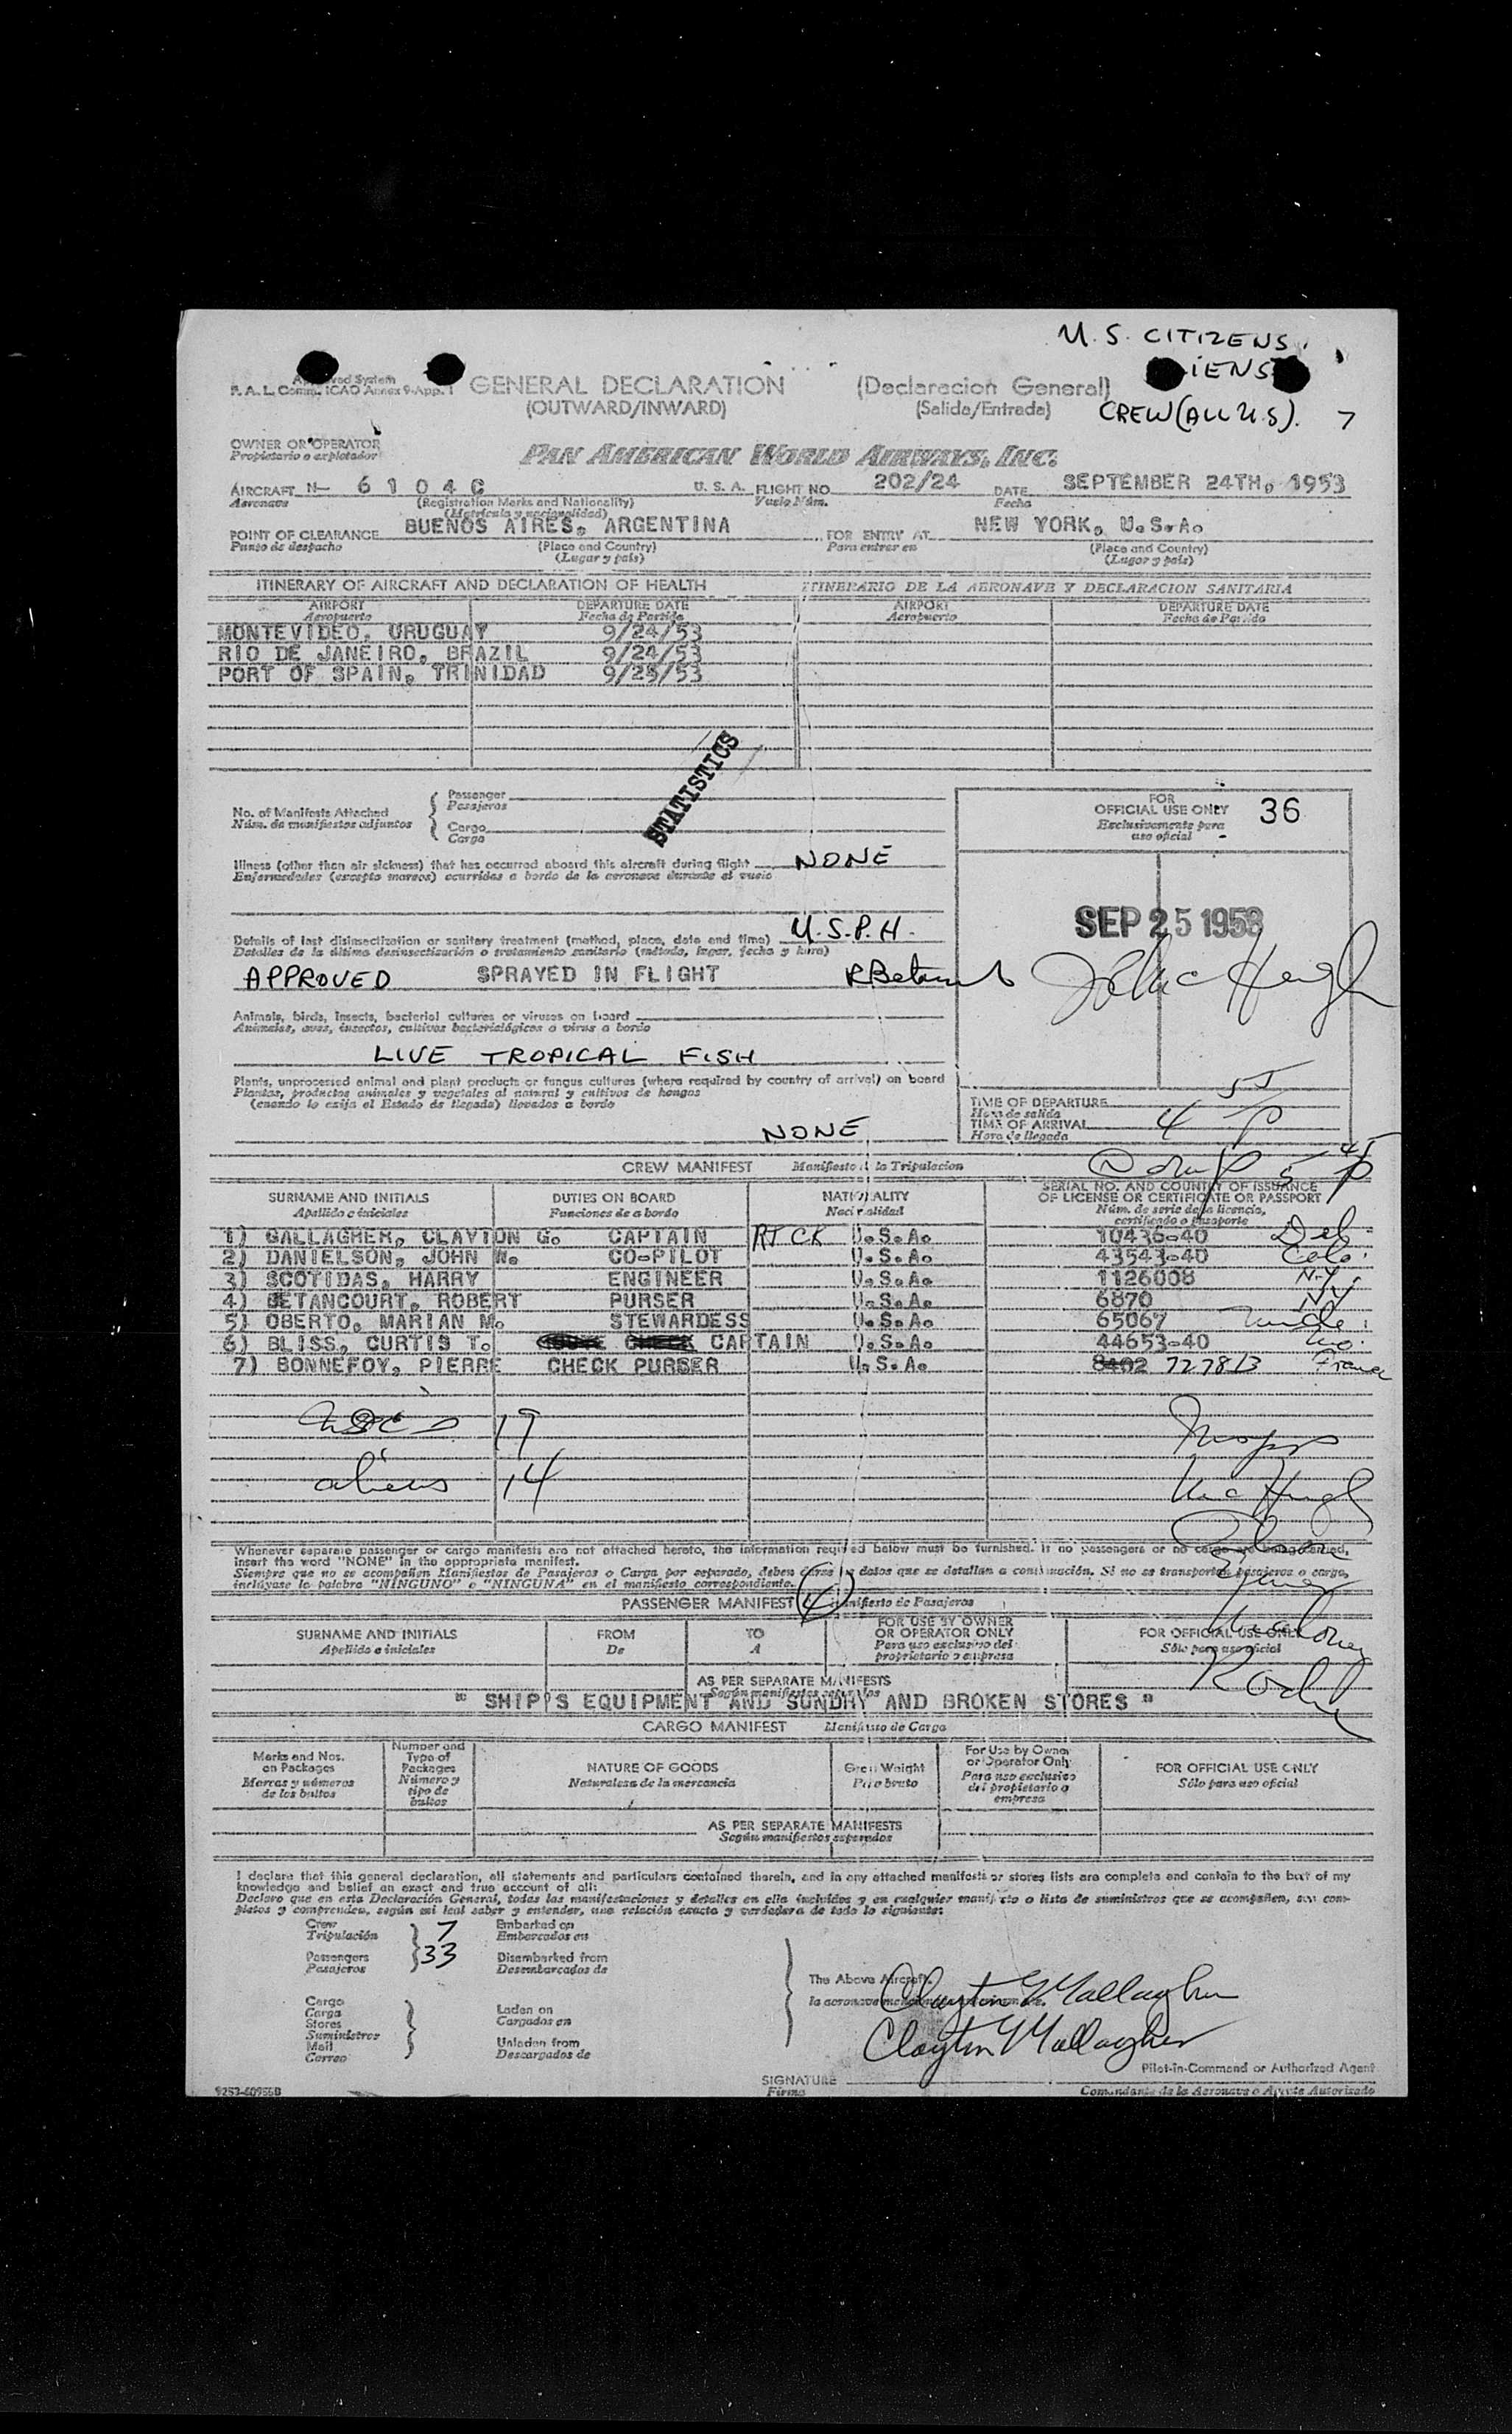 U. S. CITIZENS.
IENS
CREW (ALL U.S). 7
F. A. L. Comm. ICAO Annex 9-App. 1
GENERAL DECLARATION (Declaracion General)
(OUTWARD/INWARD) (Salida/Entrada)
OWNER OR OPERATOR
Propietario o explotador
PAN AMERICAN WORLD AIRWAYS, INC.
AIRCRAFT N- 6104C U. S. A. FLIGHT NO. 202/24 DATE SEPTEMBER 24TH, 1953
Aeronave (Registration Marks and Nationality) Vuelo Núm. Fecha
(Matrícula y nacionalidad)
POINT OF CLEARANCE BUENOS AIRES, ARGENTINA FOR ENTRY AT NEW YORK, U.S.A.
Punto de despacho (Place and Country) Para entrar en (Place and Country)
(Lugar y país) (Lugar y país)
ITINERARY OF AIRCRAFT AND DECLARATION OF HEALTH ITINERARIO DE LA AERONAVE Y DECLARACION SANITARIA
AIRPORT DEPARTURE DATE AIRPORT DEPARTURE DATE
Aeropuerto Fecha de Partida Aeropuerto Fecha de Partida
MONTEVIDEO, URUGUAY 9/24/53
RIO DE JANEIRO, BRAZIL 9/24/53
PORT OF SPAIN, TRINIDAD 9/25/53
STATISTICS
No. of Manifests Attached
Núm. de manifiestos adjuntos
Passenger
Pasajeros
Cargo
Carga
FOR
OFFICIAL USE ONLY 36
Exclusivamente para
uso oficial
Illness (other than air sickness) that has occurred aboard this aircraft during flight NONE
Enfermedades (excepto mareos) ocurridas a bordo de la aeronave durante el vuelo
SEP 25 1953
Details of last disinsectization or sanitary treatment (method, place, date and time) U.S.P.H.
Detalles de la última desinsectización o tratamiento sanitario (método, lugar, fecha y hora)
APPROVED SPRAYED IN FLIGHT
Animals, birds, insects, bacterial cultures or viruses on board
Animales, aves, insectos, cultivos bacteriológicos o virus a bordo
LIVE TROPICAL FISH
Plants, unprocessed animal and plant products or fungus cultures (where required by country of arrival) on board
Plantas, productos animales y vegetales al natural y cultivos de hongos
(cuando lo exija el Estado de llegada) llevados a bordo
NONE
TIME OF DEPARTURE
Hora de salida
TIME OF ARRIVAL 4 55 P
Hora de llegada
CREW MANIFEST Manifiesto de la Tripulacion
SURNAME AND INITIALS DUTIES ON BOARD NATIONALITY SERIAL NO. AND COUNTRY OF ISSUANCE
OF LICENSE OR CERTIFICATE OR PASSPORT
Apellido e iniciales Funciones de a bordo Nacionalidad Núm. de serie de la licencia,
certificado o pasaporte
1) GALLAGHER, CLAYTON G. CAPTAIN RT CK U.S.A. 10436-40 Del
2) DANIELSON, JOHN W. CO-PILOT U.S.A. 43543-40 Colo.
3) SCOTIDAS, HARRY ENGINEER U.S.A. 1126008 N.Y.
4) BETANCOURT, ROBERT PURSER U.S.A. 6870 NY
5) OBERTO, MARIAN M. STEWARDESS U.S.A. 65067
6) BLISS, CURTIS T. CHECK CAPTAIN U.S.A. 44653-40 Mo
7) BONNEFOY, PIERRE CHECK PURSER U.S.A. 8402 727813 France
USC 19
aliens 14
Mc Hugh
Whenever separate passenger or cargo manifests are not attached hereto, the information required below must be furnished. If no passengers or no cargo are being carried,
insert the word "NONE" in the appropriate manifest.
Siempre que no se acompañen Manifiestos de Pasajeros o Carga por separado, deben darse los datos que se detallan a continuación. Si no se transportan pasajeros o cargo,
inclúyase la palabra "NINGUNO" o "NINGUNA" en el manifiesto correspondiente.
PASSENGER MANIFEST (4) Manifiesto de Pasajeros
SURNAME AND INITIALS FROM TO FOR USE BY OWNER
OR OPERATOR ONLY FOR OFFICIAL USE ONLY
Apellido e iniciales De A Para uso exclusivo del
propietario o empresa Sólo para uso oficial
AS PER SEPARATE MANIFESTS
Según manifiestos separados
" SHIP'S EQUIPMENT AND SUNDRY AND BROKEN STORES "
CARGO MANIFEST Manifiesto de Carga
Marks and Nos.
on Packages
Marcas y números
de los bultos
Number and
Type of
Packages
Número y
tipo de
bultos
NATURE OF GOODS
Naturaleza de la mercancía
Gross Weight
Peso bruto
For Use by Owner
or Operator Only
Para uso exclusivo
del propietario o
empresa
FOR OFFICIAL USE ONLY
Sólo para uso oficial
AS PER SEPARATE MANIFESTS
Según manifiestos separados
I declare that this general declaration, all statements and particulars contained therein, and in any attached manifests or stores lists are complete and contain to the best of my
knowledge and belief an exact and true account of all:
Declaro que en esta Declaración General, todas las manifestaciones y detalles en ella incluídos y en cualquier manifiesto o lista de suministros que se acompañen, son com-
pletos y comprenden, según mi leal saber y entender, una relación exacta y verdadera de todo lo siguiente:
Crew 7 Embarked on
Tripulación Embarcados en
Passengers 33 Disembarked from
Pasajeros Desembarcados de
The Above Aircraft.
Clayton G Gallagher
Cargo
Carga
Stores
Suministros
Mail
Correo
Laden on
Cargados en
Unladen from
Descargados de
Clayton G Gallagher
Pilot-in-Command or Authorized Agent
SIGNATURE
Firma
Comandante de la Aeronave o Agente Autorizado